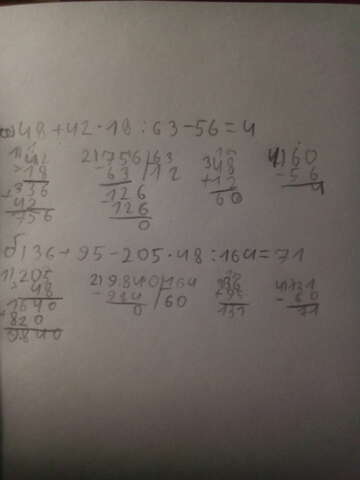 а) 48 + 42 · 18 : 63 - 56 = 4
1) 42 2) 756 63 3) 48 4) 60
18 - 63 12 + 12 - 56
+ 336 126 60 4
42 126
756 0
б) 36 + 95 - 205 · 48 : 164 = 71
1) 205 2) 9840 164 36 4) 131
48 - 984 60 95 - 60
1640 0 131 71
+ 820
9840